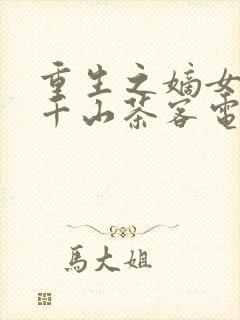 重生之嫡女
千山茶客電
馬大姐